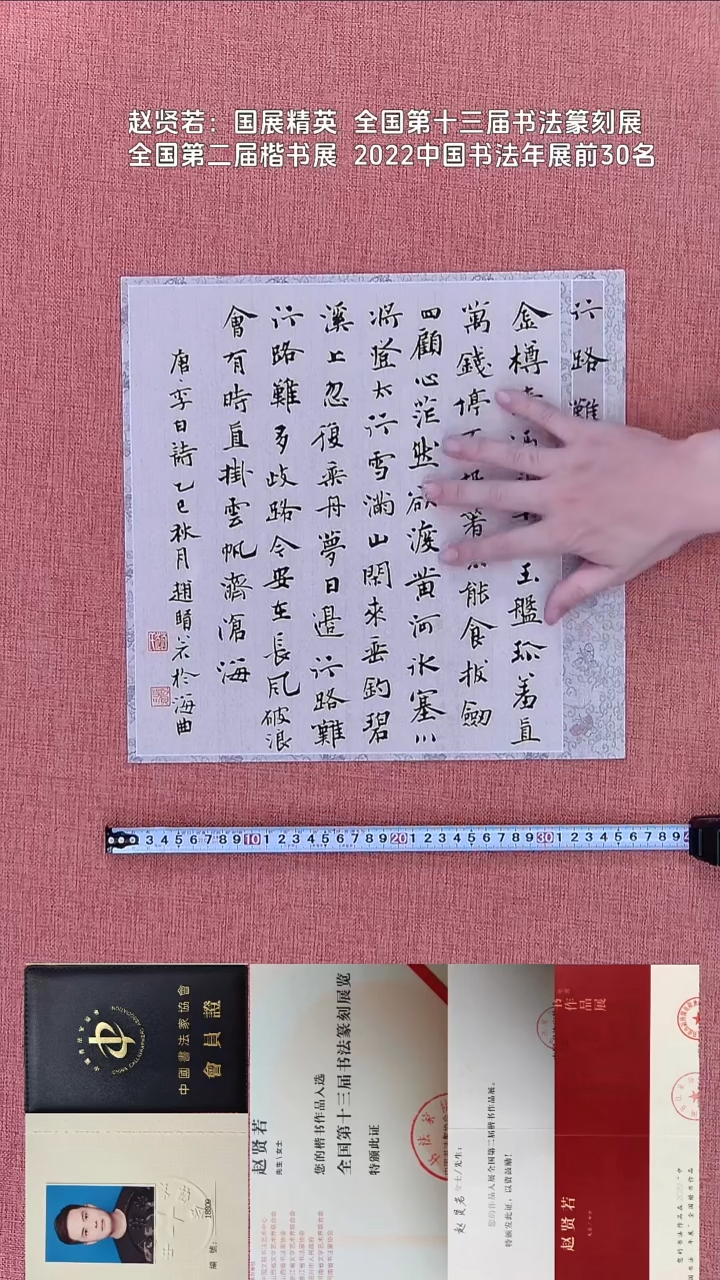 赵贤若：国展精英 全国第十三届书法篆刻展
全国第二届楷书展 2022中国书法年展前30名
行路難
金樽 玉盤珎羞直
萬錢停 箸 能食拔劒
四顧心茫然欲渡黄河氷塞川
將登太行雪滿山閑來垂釣碧
溪上忽復乘舟夢日邊行路難
行路難多歧路今安在長風破浪
會有時直掛雲帆濟滄海
唐李白詩乙巳秋月趙賢若於海曲
3 4 5 6 7 8 9 10 1 2 3 4 5 6 7 8 9 20 1 2 3 4 5 6 7 8 9 30 1 2 3 4 5 6 7 8 9
中國書法家協會
會員證
CHINA CALLIGRAPHERS ASSOCIATION
編號：
赵贤若
先生\女士
您的楷书作品入选
全国第十三届书法篆刻展览
特颁此证
赵贤若 女士/先生：
您的作品入展全国第二届楷书作品展。
特颁发此证，以资鼓励！
书
作品展
赵贤若